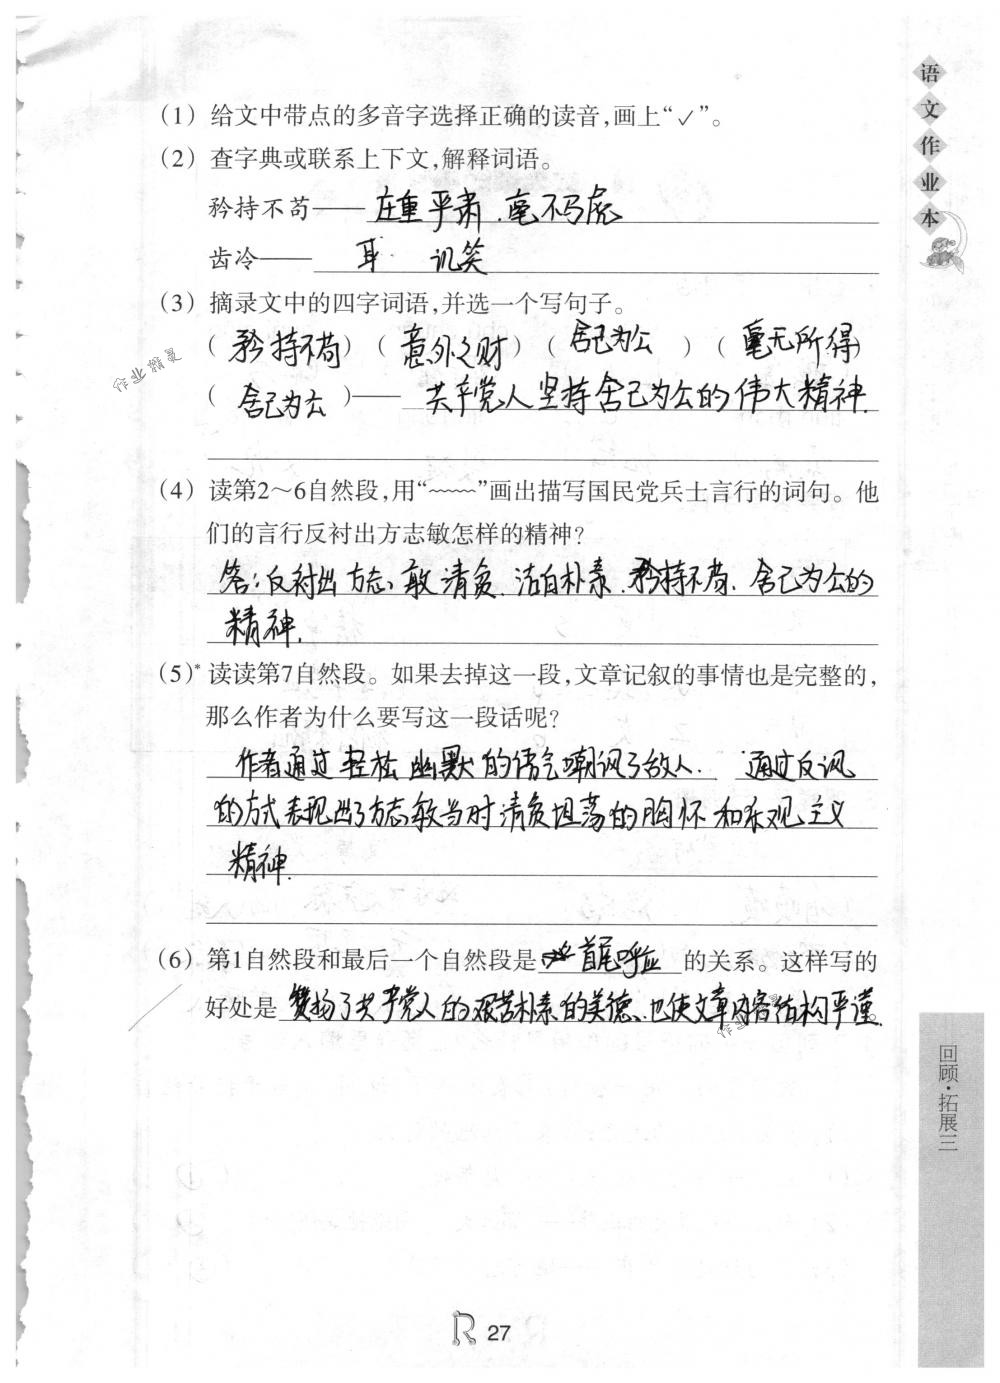 语文作业本
(1) 给文中带点的多音字选择正确的读音，画上“✓”。
(2) 查字典或联系上下文，解释词语。
矜持不苟—— 庄重严肃.毫不马虎
齿冷—— 耳. 讥笑
(3) 摘录文中的四字词语，并选一个写句子。
(矜持不苟) (意外之财) (舍己为公) (毫无所得)
(舍己为公)—— 共产党人坚持舍己为公的伟大精神.
(4) 读第2～6自然段，用“﹏﹏”画出描写国民党兵士言行的词句。他
们的言行反衬出方志敏怎样的精神？
答:反衬出方志敏清贫.洁白朴素.矜持不苟.舍己为公的
精神.
(5)* 读读第7自然段。如果去掉这一段，文章记叙的事情也是完整的，
那么作者为什么要写这一段话呢？
作者通过轻松幽默的语气嘲讽了敌人. 通过反讽
的方式表现出了方志敏当时清贫坦荡的胸怀和乐观主义
精神.
(6) 第1自然段和最后一个自然段是 首尾呼应 的关系。这样写的
好处是 赞扬了共产党人的艰苦朴素的美德、也使文章内容结构严谨。
作业精灵
回顾·拓展三
R 27